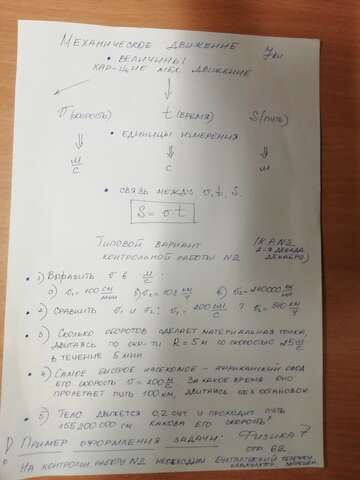 МЕХАНИЧЕСКОЕ ДВИЖЕНИЕ 7кл
• ВЕЛИЧИНЫ
ХАР-ЩИЕ МЕХ. ДВИЖЕНИЕ
υ (СКОРОСТЬ) t (ВРЕМЯ) S (ПУТЬ)
• ЕДИНИЦЫ ИЗМЕРЕНИЯ
м/с с м
• СВЯЗЬ МЕЖДУ υ, t, S.
S = υ·t
ТИПОВОЙ ВАРИАНТ (К.Р.N2
КОНТРОЛЬНОЙ РАБОТЫ N2 2-Я ДЕКАДА
ДЕКАБРЯ)
• 1) ВЫРАЗИТЬ υ В м/с :
а) υ₁ = 100 см/мин б) υ₂ = 108 км/ч в) υ₃ =
• 2) СРАВНИТЬ υ₁ И υ₂: υ₁ = 200 ? υ₂ =
• 3) СКОЛЬКО ОБОРОТОВ СДЕЛАЕТ МАТЕРИАЛЬНАЯ ТОЧКА,
ДВИГАЯСЬ ПО ОКР-ТИ R = 5 м СО СКОРОСТЬЮ
В ТЕЧЕНИЕ 5 МИН
• 4) САМОЕ БЫСТРОЕ НАСЕКОМОЕ - АФРИКАНСКИЙ ОВОД
ЕГО СКОРОСТЬ υ = 200 ЗА КАКОЕ ВРЕМЯ ОНО
ПРОЛЕТАЕТ ПУТЬ 100 КМ, ДВИГАЯСЬ БЕЗ ОСТАНОВОК
• 5) ТЕЛО ДВИЖЕТСЯ 0,2 СУТ И ПРОХОДИТ ПУТЬ
155200000 СМ КАКОВА ЕГО СКОРОСТЬ?
ПРИМЕР ОФОРМЛЕНИЯ ЗАДАЧИ: ФИЗИКА 7
СТР. 62
НА КОНТРОЛЬН. РАБОТУ N2 НЕОБХОДИМ